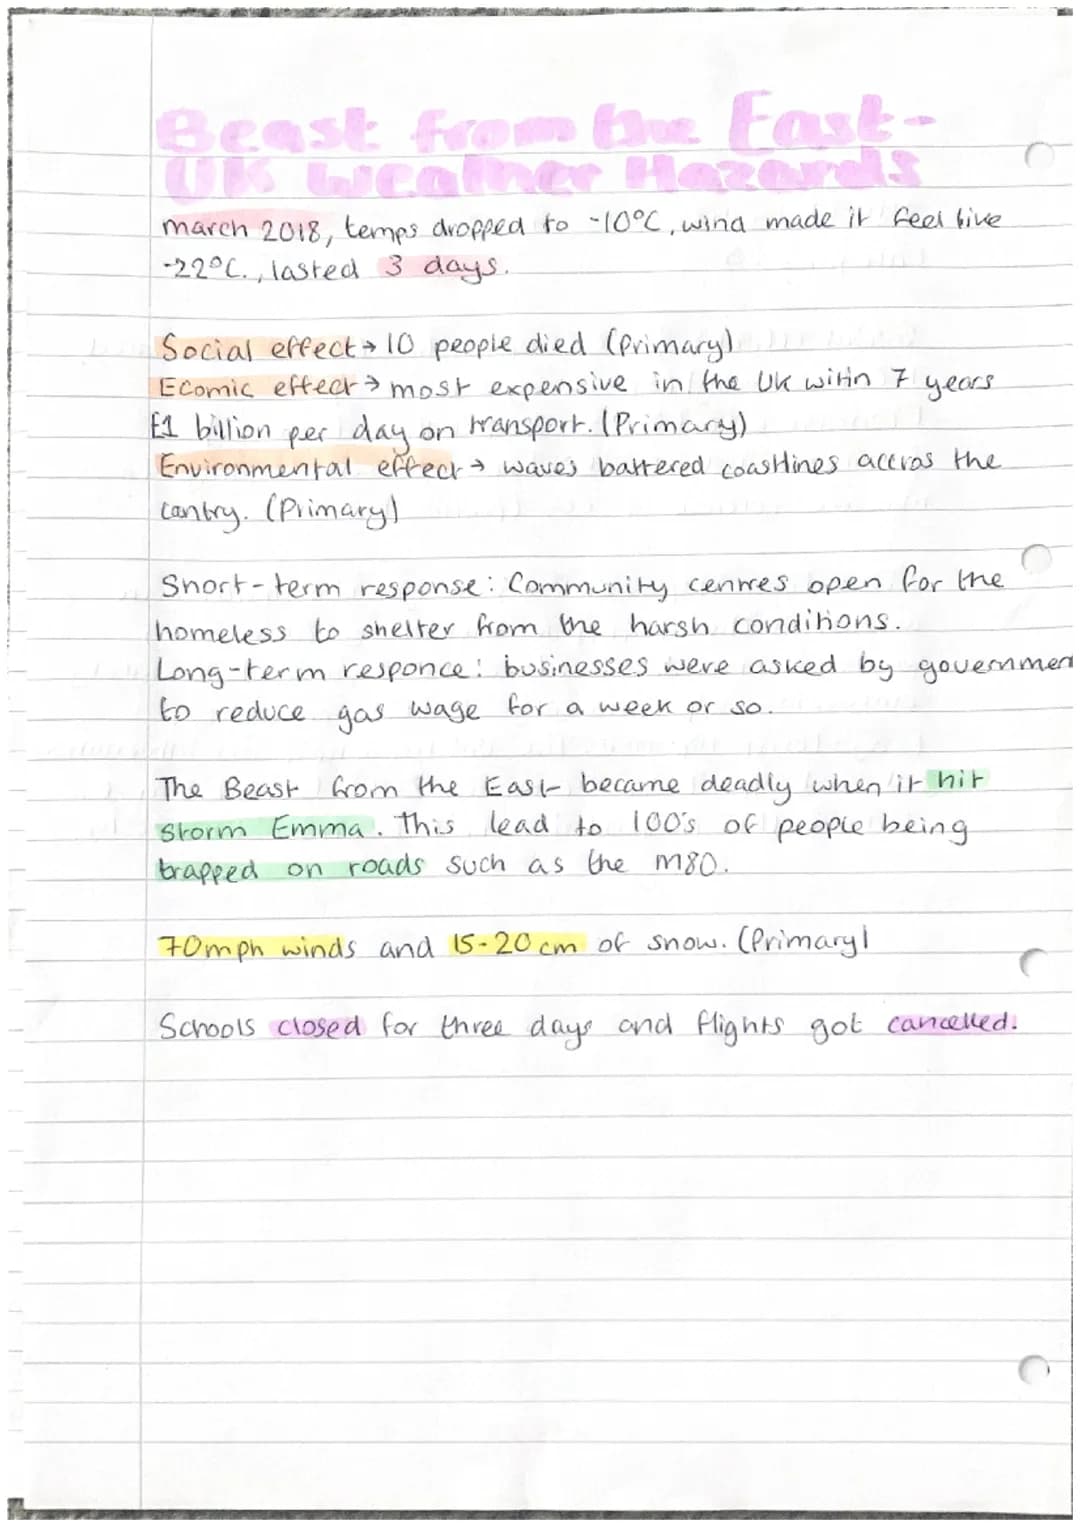 Beast from the East-
UK Weather Hazards
march 2018, temps dropped to -10°C, wind made it feel like
-22°C., lasted 3 days.
Social effect → 10 people died (Primary)
Ecomic effect → most expensive in the UK witin 7 years
£1 billion per day on transport. (Primary)
Environmental effect → waves battered coastlines accros the
contry. (Primary)
Short-term response: Community centres open for the
homeless to shelter from the harsh conditions.
Long-term responce: businesses were asked by governmen
to reduce gas wage for a week or so.
The Beast from the East became deadly when it hit
Storm Emma. This lead to 100's of people being
trapped on roads such as the M80.
70mph winds and 15-20cm of snow. (Primary)
Schools closed for three days and flights got cancelled.